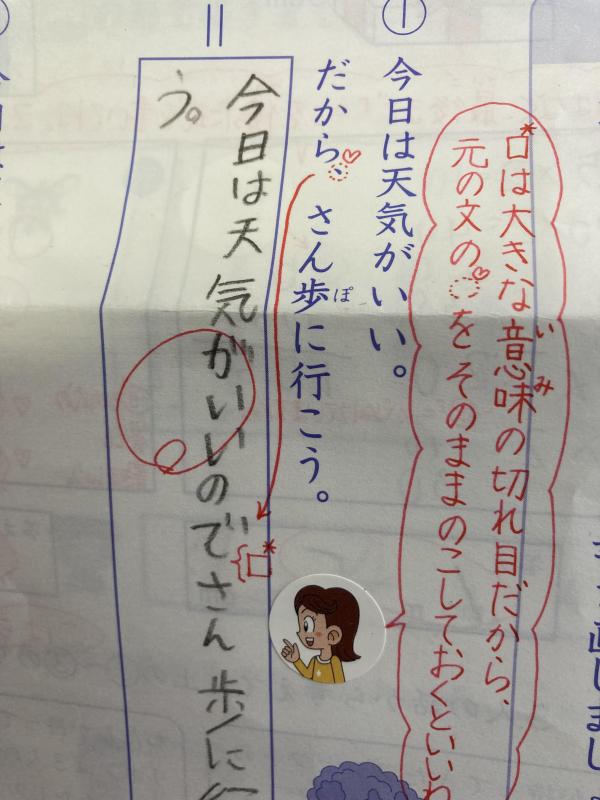 ①
*□は大きな意味の切れ目だから、
いみ
元の文の◌をそのままのこしておくといいわ
今日は天気がいい。
だから、さん歩に行こう。
ぽ
=
今日は天気がいいのでさん歩に行
う。
*